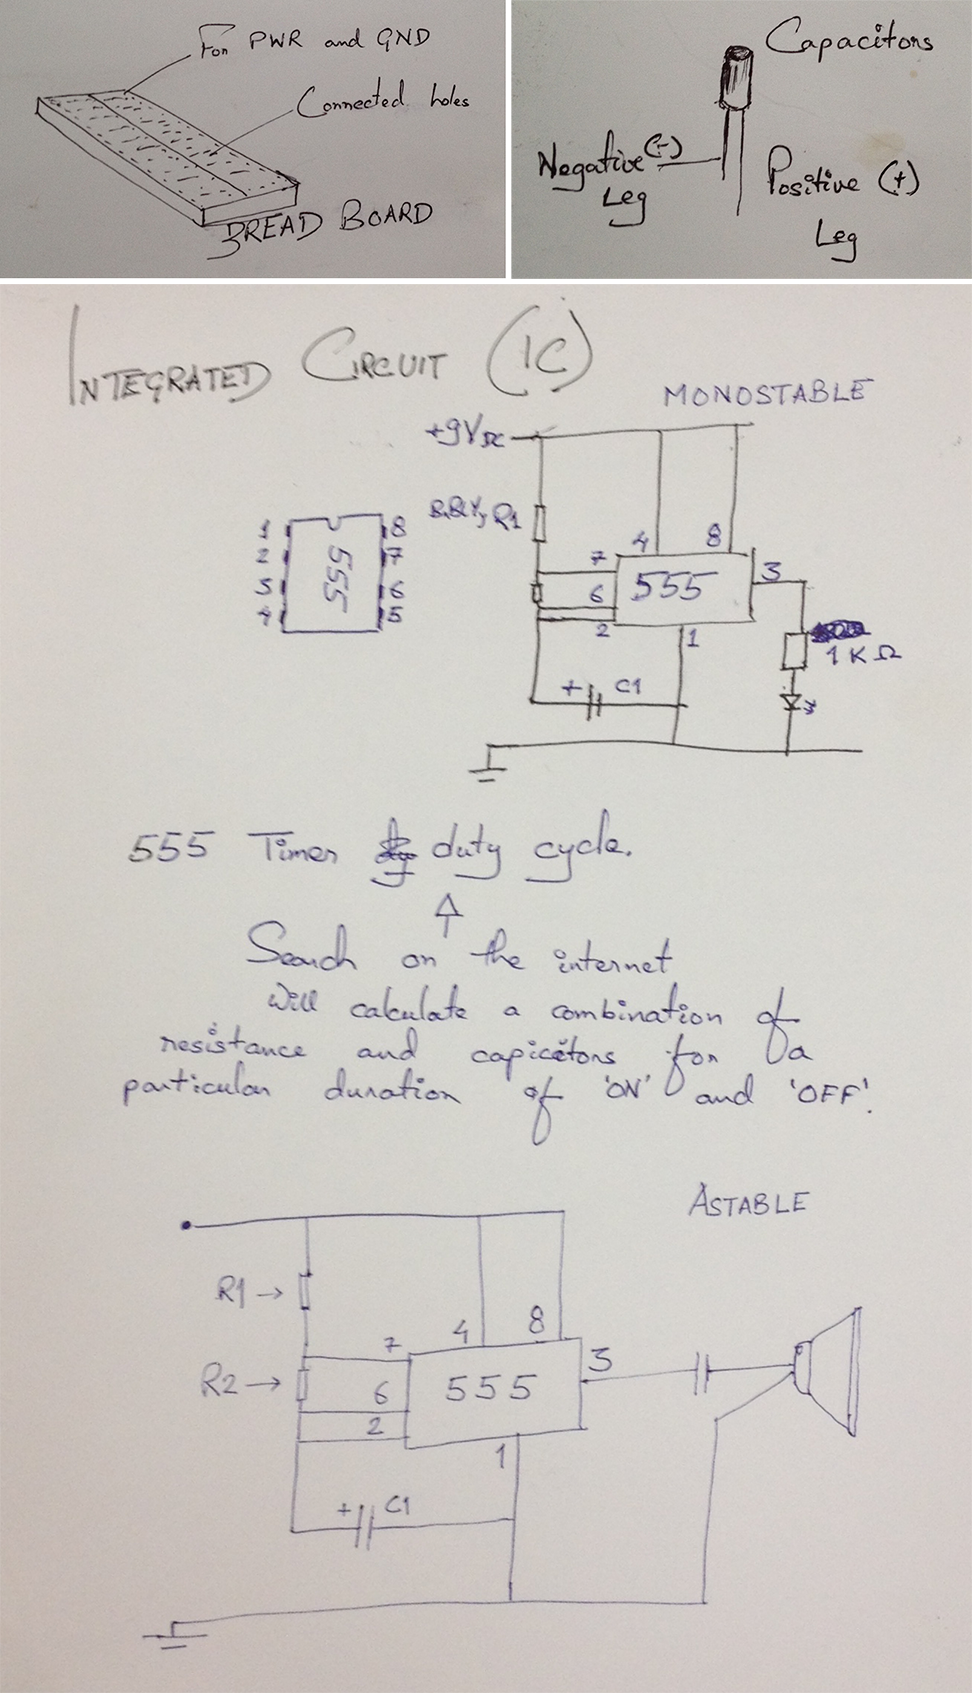 For PWR and GND
Connected holes
BREAD BOARD
Capacitors
Negative (-)
Leg
Positive (+)
Leg
INTEGRATED CIRCUIT (IC)
MONOSTABLE
+9V DC
R1
1 8
2 7
3 6
4 5
555
4 8
7
6
2
555
3
1
1 K Ω
+ C1
555 Timer duty cycle.
Search on the internet
will calculate a combination of
resistance and capicitons for a
particular duration of 'ON' and 'OFF'.
ASTABLE
R1 →
R2 →
4 8
7
6
2
555
3
1
+ C1